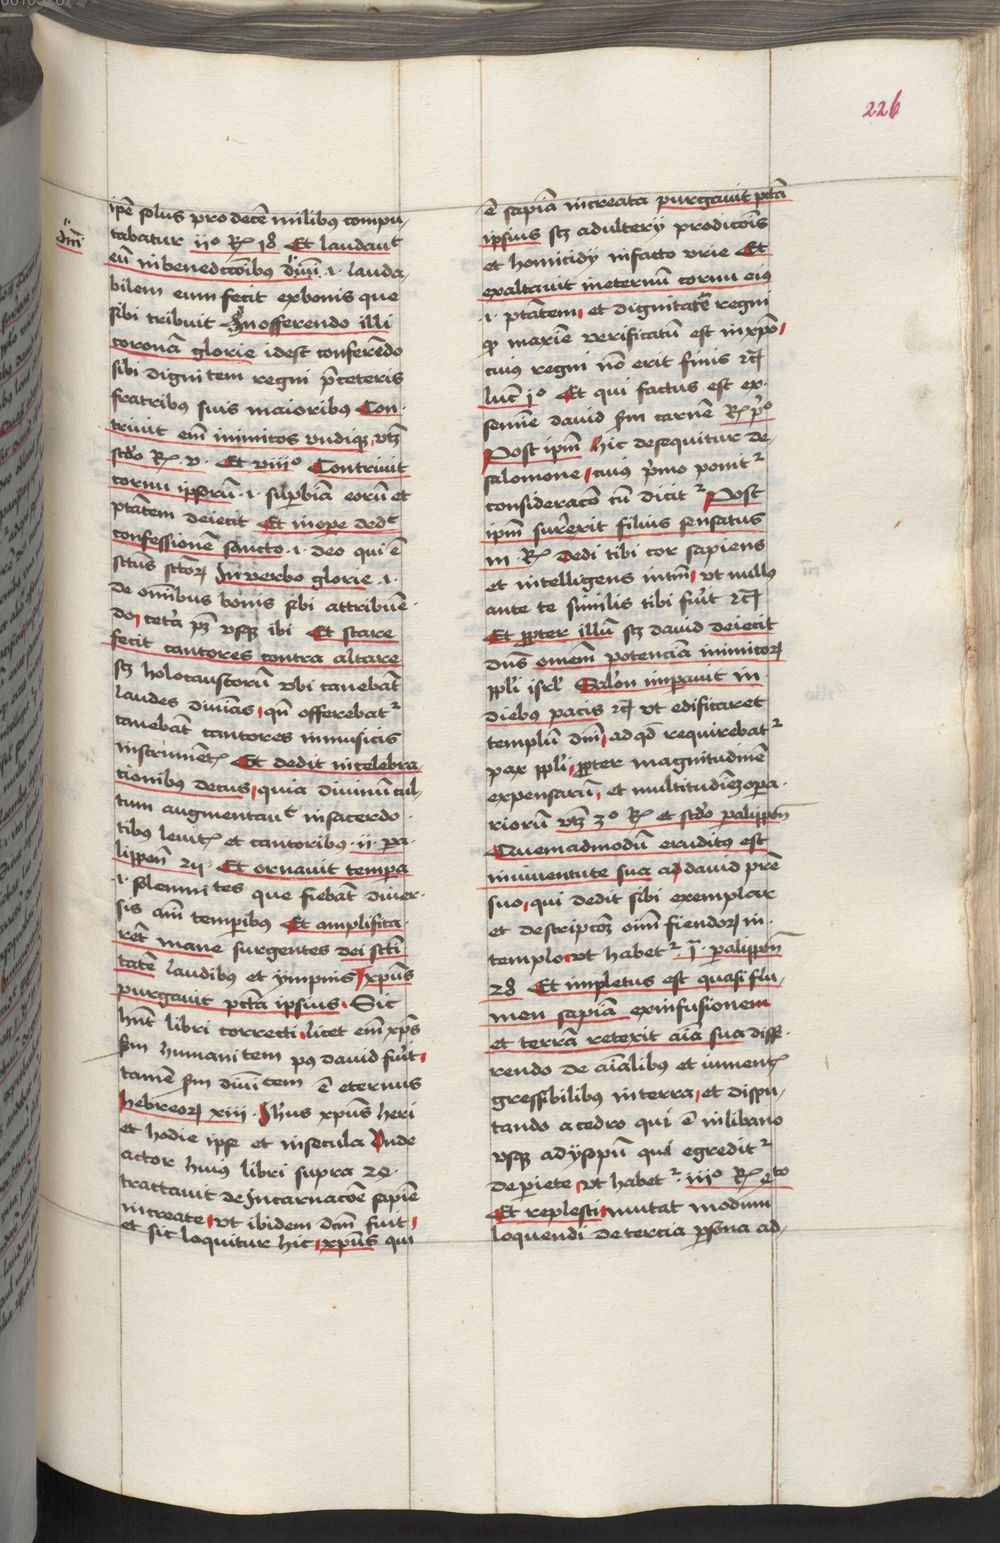 226
ip̄e solus pro decē milibus compu-
tabatur ijº R̄ 18 Et laudauᵗ
dn̄i
eū in benedictōibus dn̄i .i. lauda-
bilem eum fecit ex bonis que
sibi tribuit In offerendo illi
coronā glorie idest conferēdo
sibi dignitem regni p̄ ceteris
fratribus suis maioribus Con-
triuit em̄ inimicos vndiqꝫ vtꝫ
scd̄o R̄ v. Et viijº Contriuit
cornu ip̄orū .i. suꝑbiā eorū et
ptātem deiecit Et in oꝑe dedᵗ
confessionē sancto .i. deo qui ē
sctūs sctōꝝ In verbo glorie .i.
de om̄ibus bonis sibi attribuēn-
do, cetera pꝫ vsqꝫ ibi Et stare
fecit cantores contra altare
sꝫ holocaustorū vbi canebāt
laudes diuinas, qn̄ offerebatʳ
canebāt cantores in musicis
instrumētꝭ Et dedit in celebra-
cionibus decus, quia diuinū cul-
tum augmentauᵗ in sacerdo-
tibus leuitꝭ et cantoribus .ii. pa-
lippen̄ 2ij. Et ornauit tempora
.i. solemnitates que fiebāt diuer-
sis an̄i temporibus Et amplifica-
rēt mane surgentes dei scti-
tatē laudibus et ympnis, xp̄us
purgauit pctā ipsius. Sic
hn̄t libri correcti, licet em̄ xp̄s
sm̄ humanitem pꝰ dauid fuit,
tamē sm̄ diuitem ē eternus
hebreoꝝ xiii. Ihūs xp̄us heri
et hodie ipse et in secula Vnde
actor huius libri supra 24.
tractauit de Incarnacōe sapiē
increate, vt ibidem dc̄m fuit,
et sic loquitur hic, xp̄us qui
ē sapiā increata purgauit pctā
ipsius sꝫ adulterij prodicōis
et homicidij in facto vrie Et
exaltauit in eternū cornu eius
.i. ptātem, et dignitatē regni
qꝫ maxīe verificatū est in xp̄o,
cuius regni nō erit finis ꝛc̄
luc̄ jº Et qui factus est ex
semīe dauid sm̄ carnē R̄ pº
Post ipm̄ hic desequitur de
salomone, cuius p̄mo ponitʳ
consideracō cū dicitʳ Post
ipm̄ surrexit filius sensatus
iij R̄ Dedi tibi cor sapiens
et intelligens intm̄, vt nullus
ante te similis tibi fuit ꝛc̄
Et ꝓpter illū sꝫ dauid deiecit
dn̄s omnem potenciā inimicoꝝ
ppl̄i isrl̄ Salon̄ impauit in
diebus pacis ꝛc̄ vt edificaret
templū dn̄i, ad qd̄ requirebatʳ
pax ppl̄i, ꝓpter magnitudinē
expensarū, et multitudinē opera-
riorū vtꝫ 3º R̄ et scd̄o palippen̄
Quemadmodū eruditus est
in iuuentute sua a dauid prē
suo, qui dedit sibi exemplar
et descripcōꝫ oim̄ fiendoꝝ in
templo, vt habetʳ .j. palippen̄
28 Et impletus est quasi flu-
men sapiā ex infusionem
et terrā retexit aīa sua disse-
rendo de aīalibus et iumentꝭ
gressibilibus in terra, et dispu-
tando a cedro qui ē in libano
vsqꝫ ad ysopū qui egreditʳ
de pariete, vt habetʳ iijº R̄ 4ᵗᵒ
Et replesti, mutat modum
loquendi de tercia ꝑsona ad-